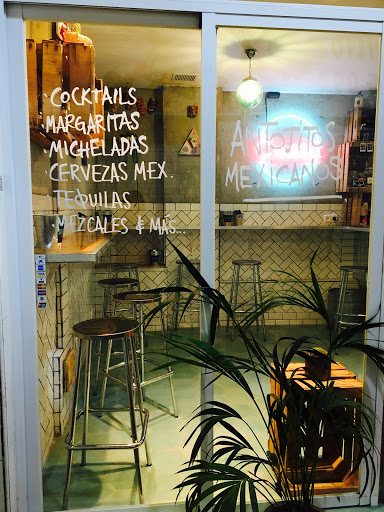 ·COCKTAILS
·MARGARITAS
·MICHELADAS
·CERVEZAS MEX.
·TEQUILAS
·MEZCALES & MÁS...
ANTOJITOS
MEXICANOS